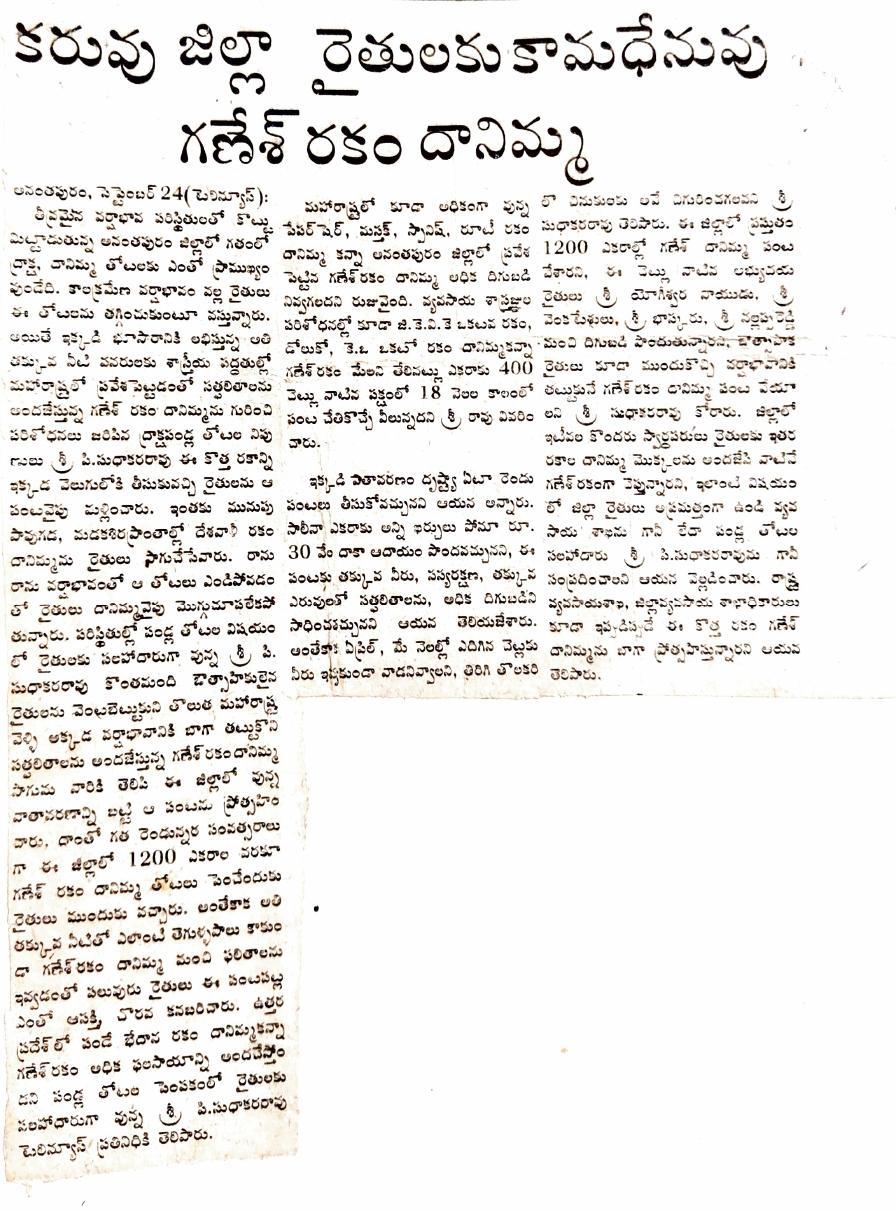 కరువు జిల్లా రైతులకు కామధేనువు
గణేశ్ రకం దానిమ్మ
అనంతపురం, సెప్టెంబర్ 24(టెలిన్యూస్):
తీవ్రమైన వర్షాభావ పరిస్థితులతో కొట్టు
మిట్టాడుతున్న అనంతపురం జిల్లాలో గతంలో
ద్రాక్ష, దానిమ్మ తోటలకు ఎంతో ప్రాముఖ్యం
వుండేది. కాలక్రమేణ వర్షాభావం వల్ల రైతులు
ఈ తోటలను తగ్గించుకుంటూ వస్తున్నారు.
అయితే ఇక్కడి భూసారానికి లభిస్తున్న అతి
తక్కువ నీటి వనరులకు శాస్త్రీయ పద్ధతుల్లో
మహారాష్ట్రలో ప్రవేశపెట్టడంతో సత్ఫలితాలను
అందజేస్తున్న గణేశ్ రకం దానిమ్మను గురించి
పరిశోధనలు జరిపిన ద్రాక్షపండ్ల తోటల నిపు
ణులు శ్రీ పి.సుధాకరరావు ఈ కొత్త రకాన్ని
ఇక్కడ వెలుగులోకి తీసుకువచ్చి రైతులను ఆ
పంటవైపు మళ్లించారు. ఇంతకు మునుపు
పావుగడ, మడకశిరప్రాంతాల్లో దేశవాళీ రకం
దానిమ్మను రైతులు సాగుచేసేవారు. రాను
రాను వర్షాభావంతో ఆ తోటలు ఎండిపోవడం
తో రైతులు దానిమ్మవైపు మొగ్గుచూపలేకపో
తున్నారు. పరిస్థితుల్లో పండ్ల తోటల విషయం
లో రైతులకు సలహాదారుగా వున్న శ్రీ పి.
సుధాకరరావు కొంతమంది ఔత్సాహికులైన
రైతులను వెంటబెట్టుకుని తొలుత మహారాష్ట్ర
వెళ్ళి అక్కడ వర్షాభావానికి బాగా తట్టుకొని
సత్ఫలితాలను అందజేస్తున్న గణేశ్ రకందానిమ్మ
సాగును వారికి తెలిపి ఈ జిల్లాలో వున్న
వాతావరణాన్ని బట్టి ఆ పంటను ప్రోత్సహిం
చారు, దాంతో గత రెండున్నర సంవత్సరాలు
గా ఈ జిల్లాలో 1200 ఎకరాల వరకూ
గణేశ్ రకం దానిమ్మ తోటలు పెంచేందుకు
రైతులు ముందుకు వచ్చారు. అంతేకాక అతి
తక్కువ నీటితో ఎలాంటి తెగుళ్ళపాలు కాకుం
డా గణేశ్ రకం దానిమ్మ మంచి ఫలితాలను
ఇవ్వడంతో పలువురు రైతులు ఈ పంటపట్ల
ఎంతో ఆసక్తి, చొరవ కనబరిచారు. ఉత్తర
ప్రదేశ్‌లో పండే భేదాన రకం దానిమ్మకన్నా
గణేశ్ రకం అధిక ఫలసాయాన్ని అందచేస్తోం
దని పండ్ల తోటల పెంపకంలో రైతులకు
సలహాదారుగా వున్న శ్రీ పి.సుధాకరరావు
టెలిన్యూస్ ప్రతినిధికి తెలిపారు.
మహారాష్ట్రలో కూడా అధికంగా వున్న
పేపర్ షెర్, మస్తక్, స్పానిష్, రూబీ రకం
దానిమ్మ కన్నా అనంతపురం జిల్లాలో ప్రవేశ
పెట్టిన గణేశ్ రకం దానిమ్మ అధిక దిగుబడి
నివ్వగలదని రుజువైంది. వ్యవసాయ శాస్త్రజ్ఞుల
పరిశోధనల్లో కూడా జి.కె.వి.కె ఒకటవ రకం,
డోలుకో, కె.ఒ ఒకటో రకం దానిమ్మకన్నా
గణేశ్ రకం మేలని తేలినట్లు ఎకరాకు 400
చెట్లు నాటిన పక్షంలో 18 నెలల కాలంలో
పంట చేతికొచ్చే వీలున్నదని శ్రీ రావు వివరిం
చారు.
ఇక్కడి వాతావరణం దృష్ట్యా ఏటా రెండు
పంటలు తీసుకోవచ్చునని ఆయన అన్నారు.
సాలీనా ఎకరాకు అన్ని ఖర్చులు పోనూ రూ.
30 వేల దాకా ఆదాయం పొందవచ్చునని, ఈ
పంటకు తక్కువ నీరు, సస్యరక్షణ, తక్కువ
ఎరువులతో సత్ఫలితాలను, అధిక దిగుబడిని
సాధించవచ్చునని ఆయన తెలియజేశారు.
అంతేకాక ఏప్రిల్, మే నెలల్లో ఎదిగిన చెట్లకు
నీరు ఇవ్వకుండా వాడనివ్వాలని, తిరిగి తొలకరి
లో చినుకులకు అవే చిగురించగలవని శ్రీ
సుధాకరరావు తెలిపారు. ఈ జిల్లాలో ప్రస్తుతం
1200 ఎకరాల్లో గణేశ్ దానిమ్మ పంట
వేశారని, ఈ చెట్లు నాటిన అభ్యుదయ
రైతులు శ్రీ యోగీశ్వర నాయుడు, శ్రీ
వెంకటేశులు, శ్రీ భాస్కరు, శ్రీ నల్లప్పరెడ్డి
మంచి దిగుబడి పొందుతున్నారని, ఔత్సాహిక
రైతులు కూడా ముందుకొచ్చి వర్షాభావానికి
తట్టుకునే గణేశ్ రకం దానిమ్మ పంట వేయా
లని శ్రీ సుధాకరరావు కోరారు. జిల్లాలో
ఇటీవల కొందరు స్వార్థపరులు రైతులకు ఇతర
రకాల దానిమ్మ మొక్కలను అందజేసి వాటినే
గణేశ్ రకంగా చెప్తున్నారని, ఇలాంటి విషయం
లో జిల్లా రైతులు అప్రమత్తంగా ఉండి వ్యవ
సాయ శాఖను గానీ లేదా పండ్ల తోటల
సలహాదారు శ్రీ పి.సుధాకరరావును గానీ
సంప్రదించాలని ఆయన వెల్లడించారు. రాష్ట్ర
వ్యవసాయశాఖ, జిల్లావ్యవసాయ శాఖాధికారులు
కూడా ఇప్పుడిప్పుడే ఈ కొత్త రకం గణేశ్
దానిమ్మను బాగా ప్రోత్సహిస్తున్నారని ఆయన
తెలిపారు.